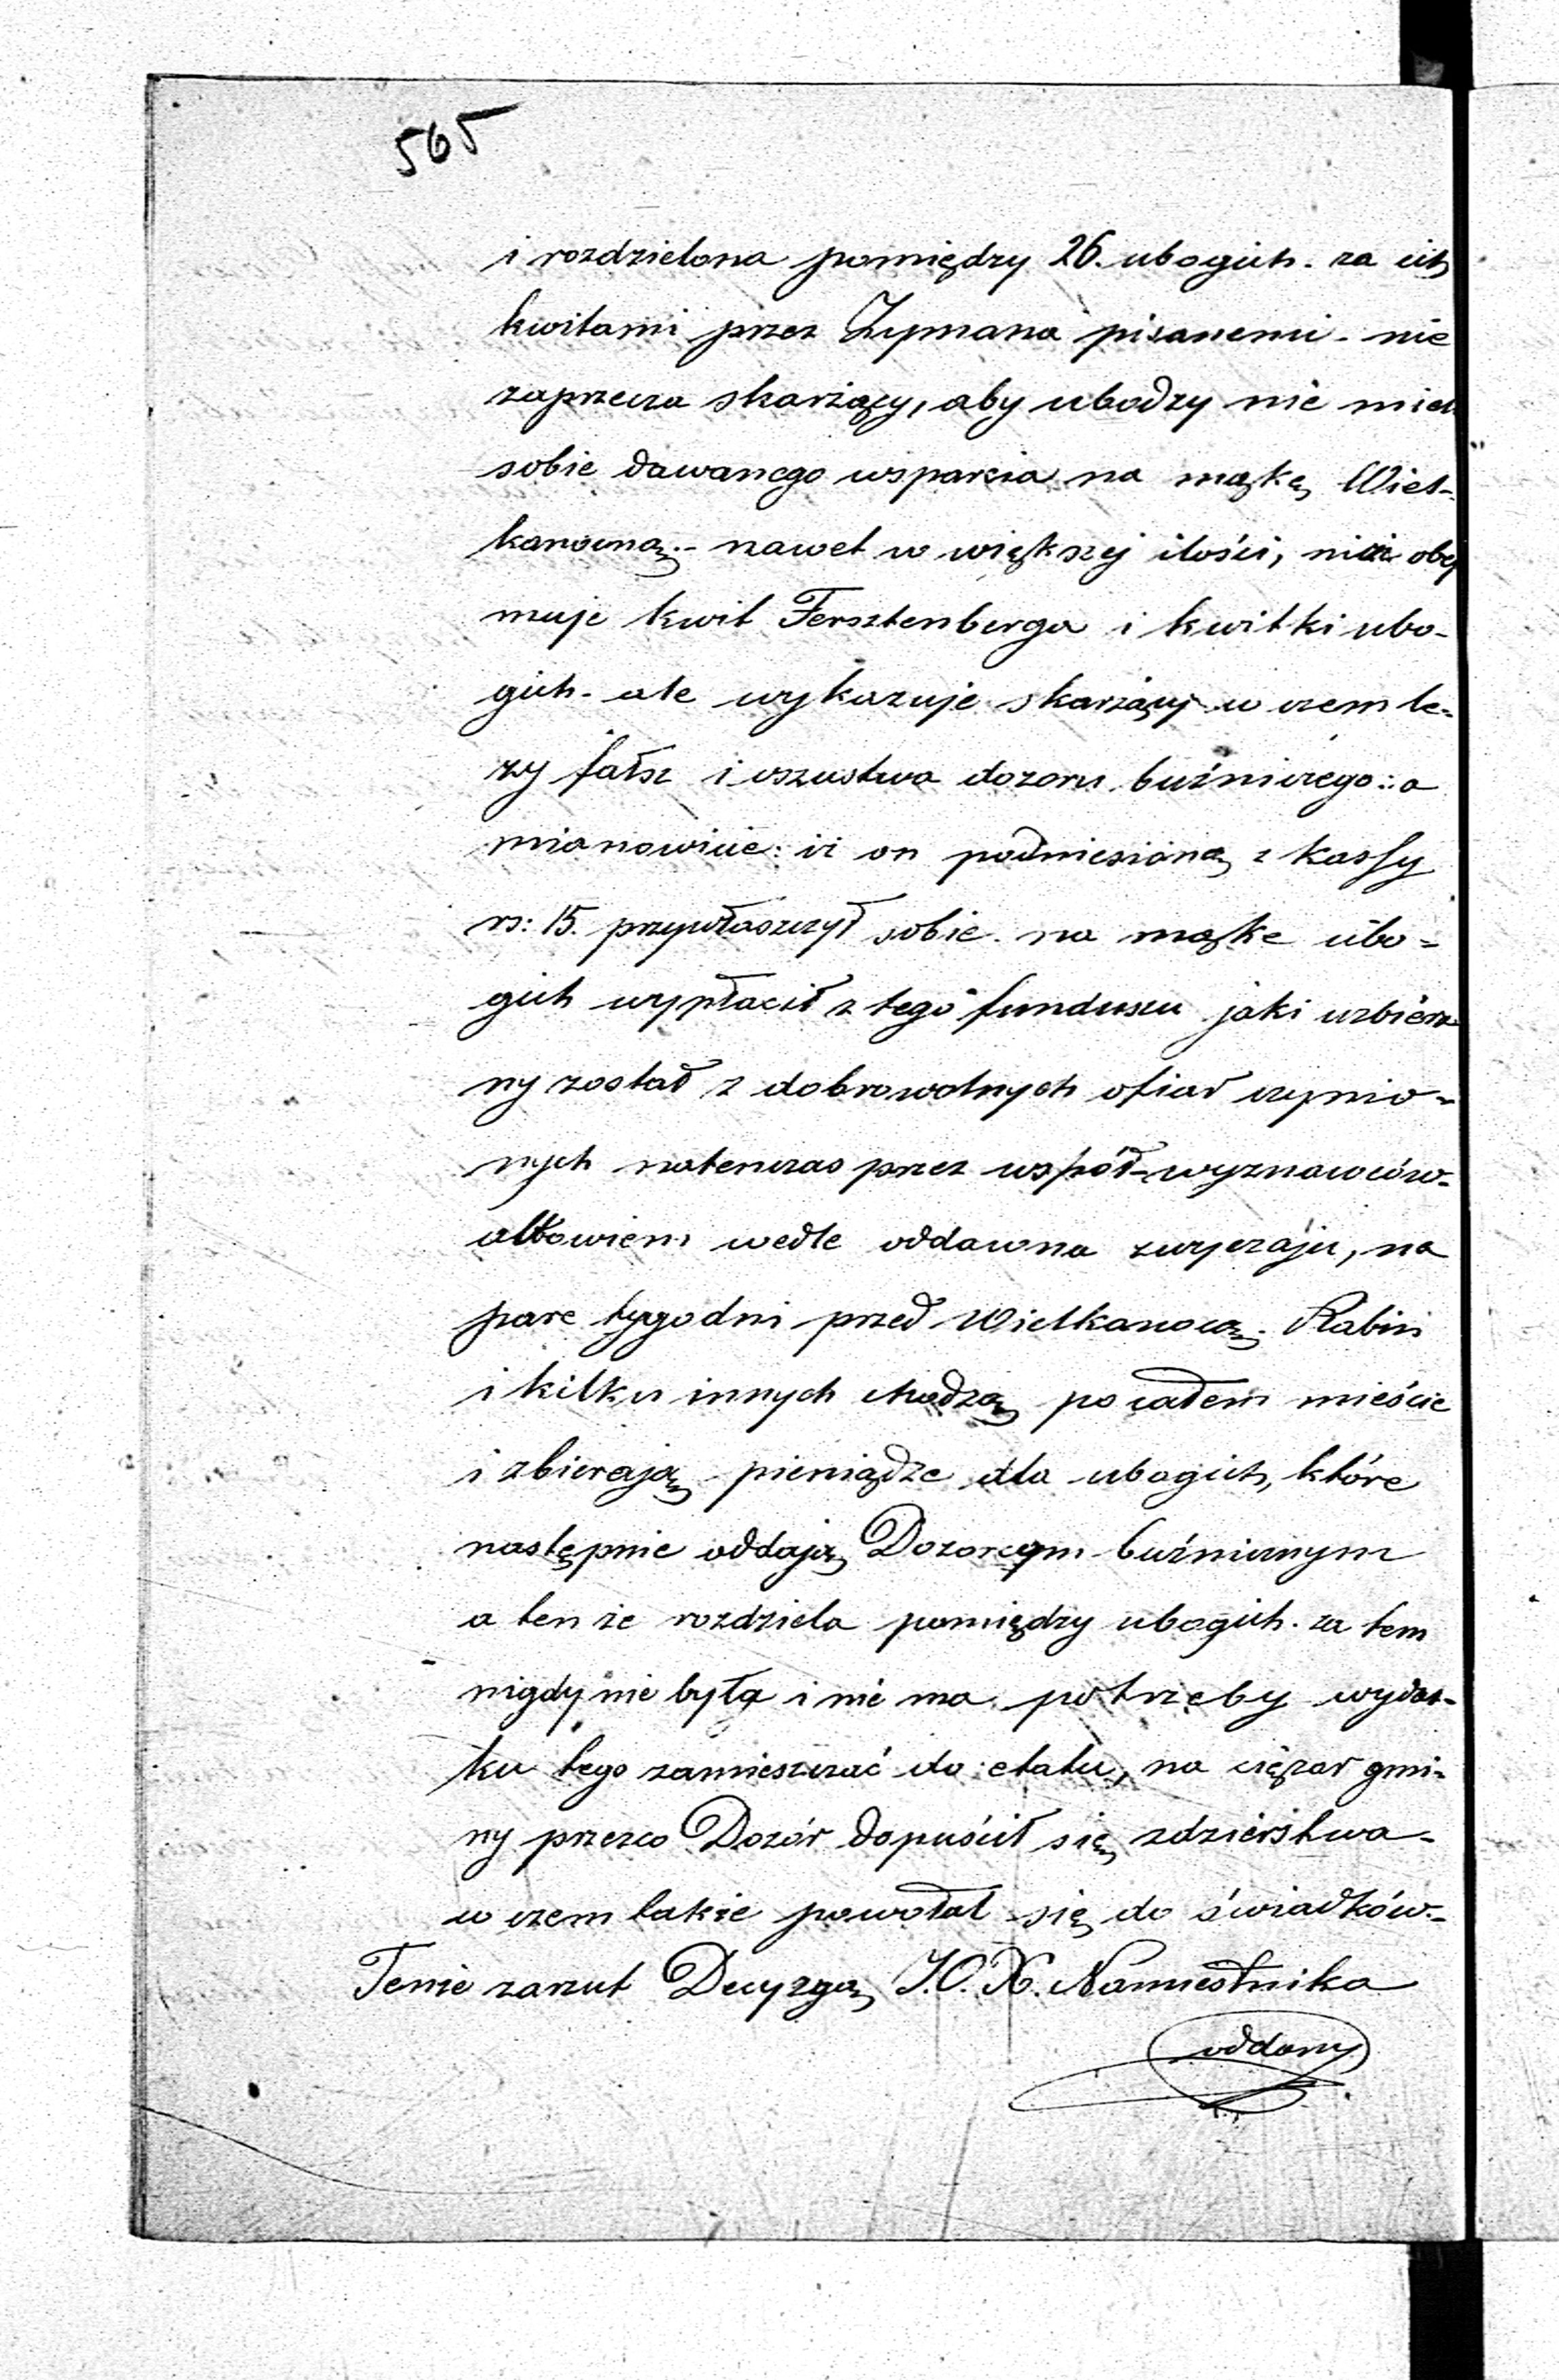 565
i rozdzielona pomiędzy 26. ubogich. za ich
kwitami przez Zymana pisanemi - nie
zaprzecza skarżący, aby ubodzy nie miel
sobie dawanego wsparcia na mąkę Wiel-
kanocną. - nawet w większej ilości, niż obej
muje kwit Fersztenberga i kwitki ubo-
gich - ale wykazuje skarżący w czem le-
ży fałsz i oszustwa dozoru buźniczego: a
mianowicie: iż on podniesioną z kassy
rs: 15. przywłaszczył sobie. na mąkę ubo-
gich wypłacił z tego funduszu jaki uzbiera
ny został z dobrowolnych ofiar czynio-
nych natenczas przez współ-wyznawców -
albowiem wedle oddawna zwyczaju, na
parę tygodni przed Wielkanocą. Rabin
i kilku innych chodzą po całem mieście
i zbierają pieniądze dla ubogich, które
następnie oddają Dozorcom buźnicznym
a ten że rozdziela pomiędzy ubogich. za tem
nigdy nie było i nie ma potrzeby wydat-
ku tego zamieszczać do etatu, na ciężar gmi-
ny przezco Dozór dopuścił się zdzierstwa -
w czem także powołał się do świadków. -
Tenże zarzut Decyzyą J.O.X. Namiestnika
oddany